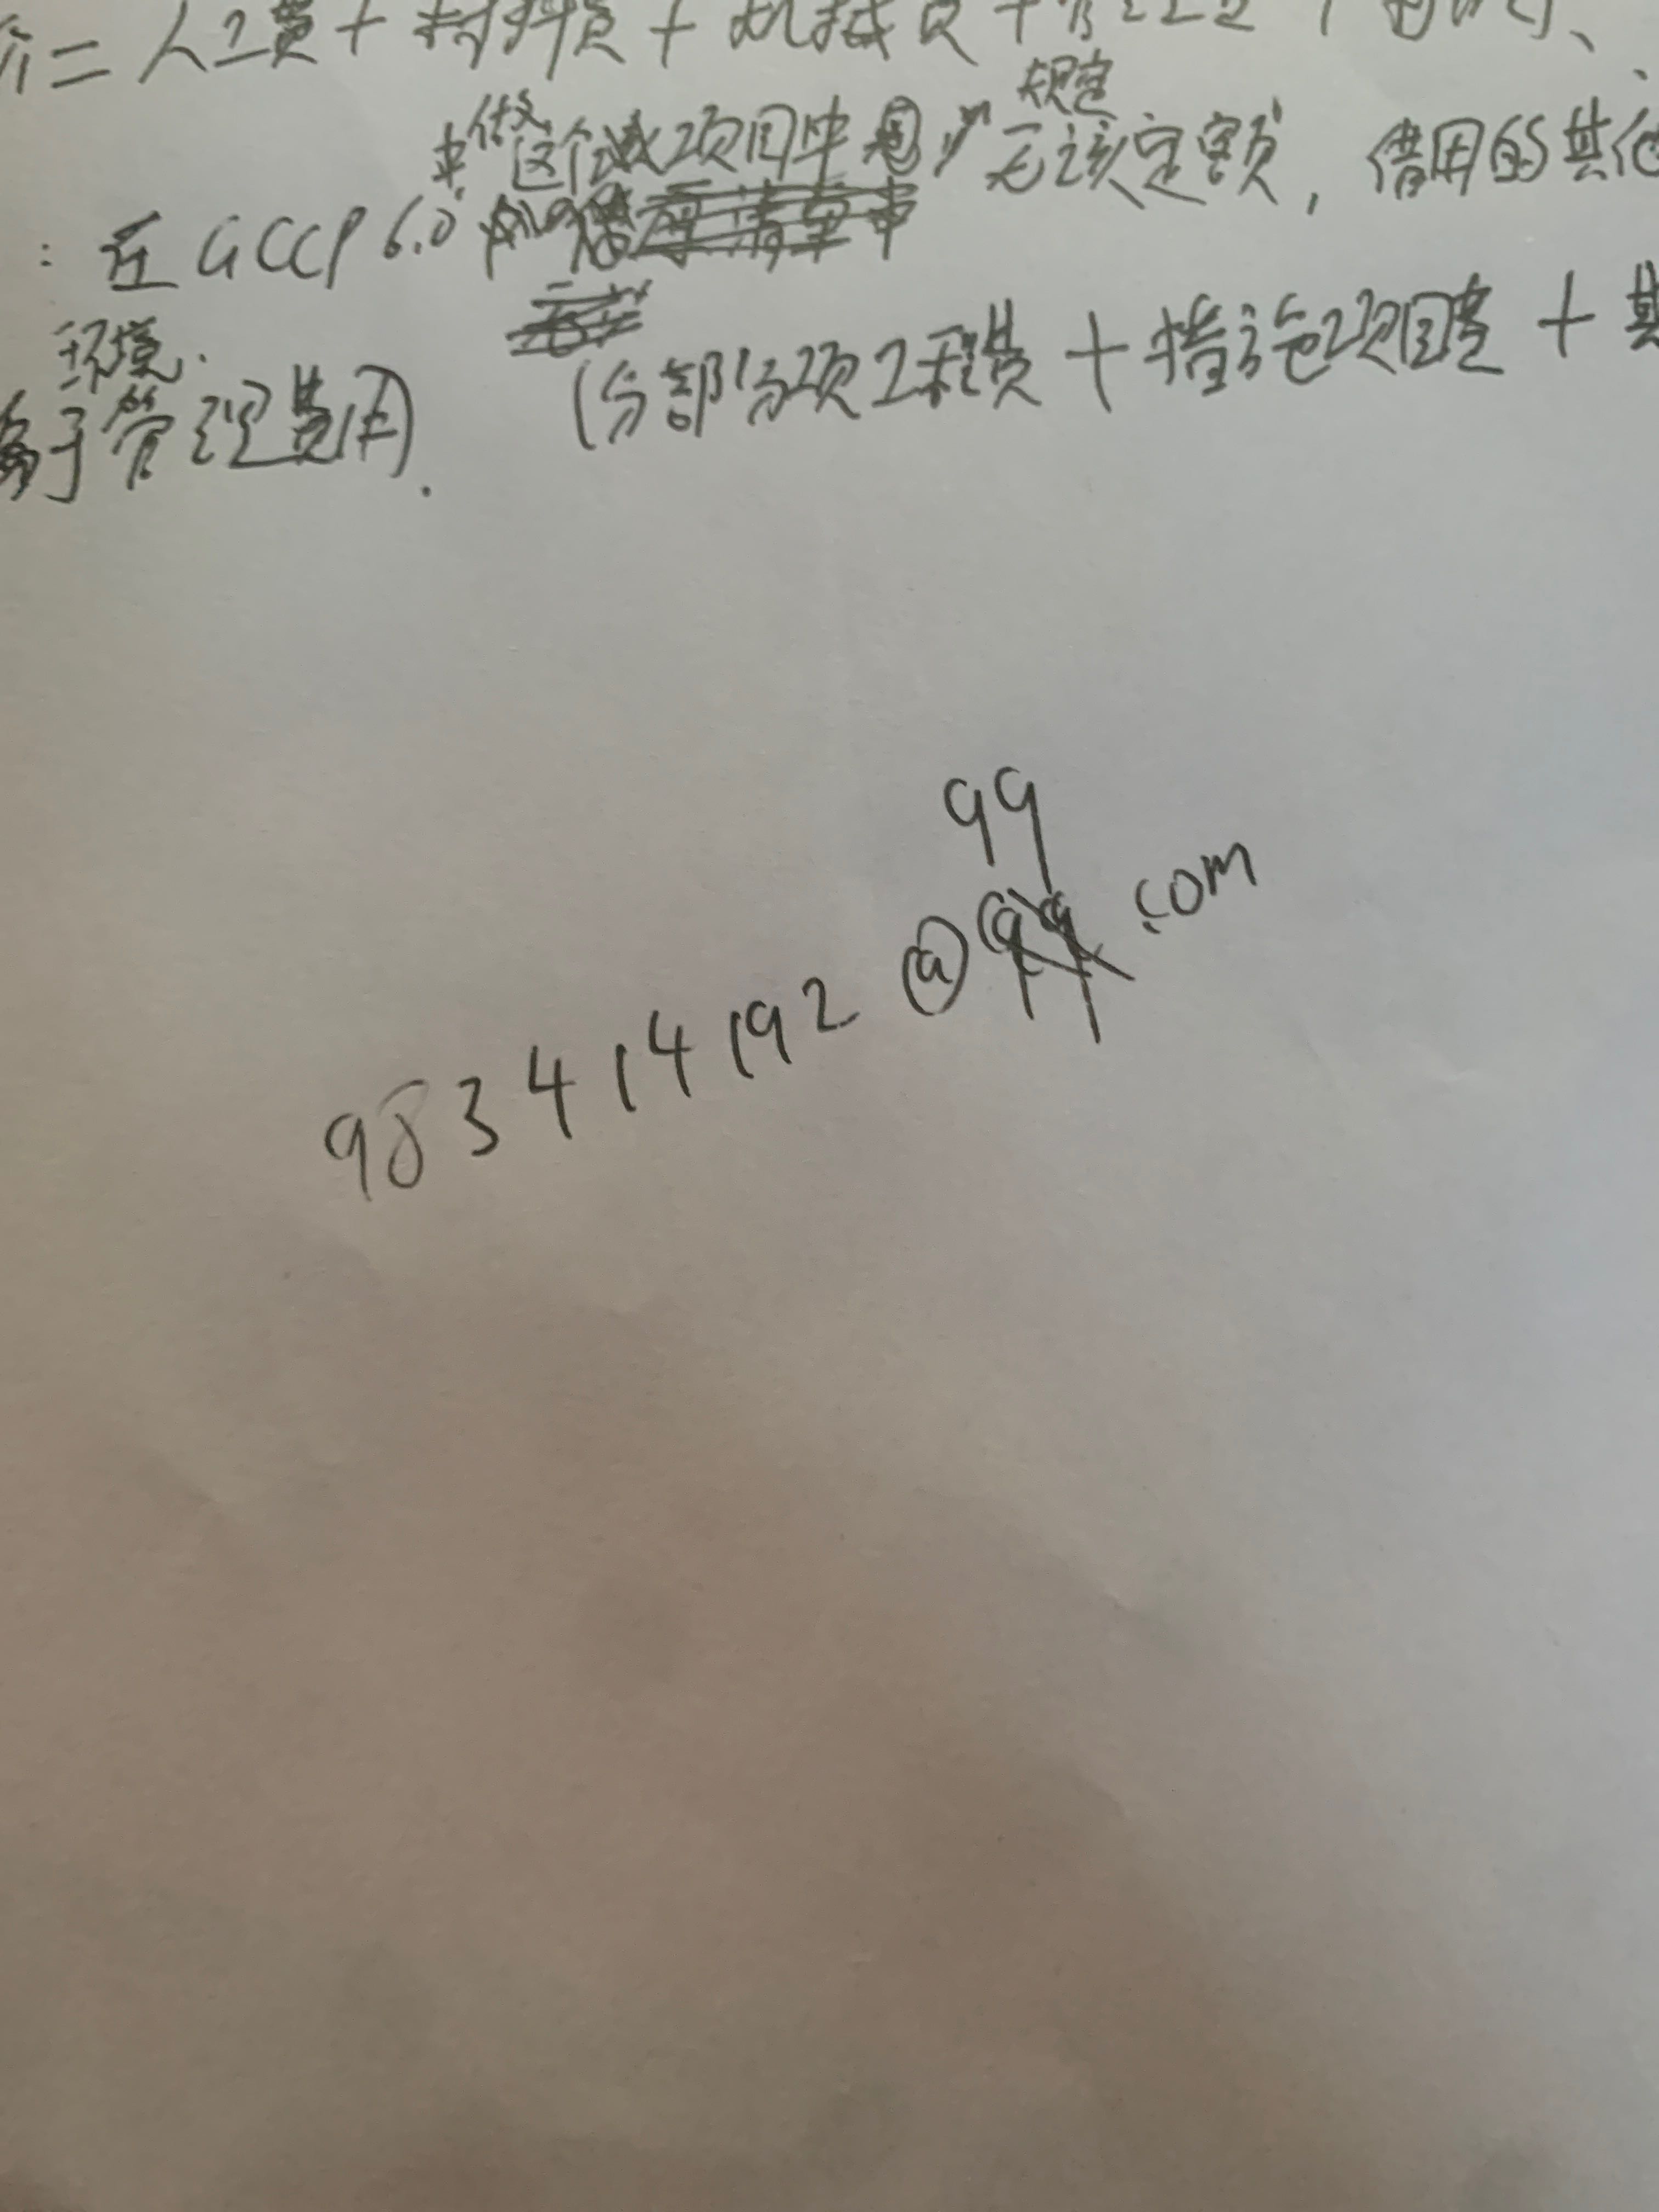 价=人工费+材料费+机械费+管
规定
来做这个项目中 无该定额,借用的其他
:在GCCP6.0
环境.
(分部分项工程费+措施项目费+其
属于管理费用.
qq
983414192@ .com